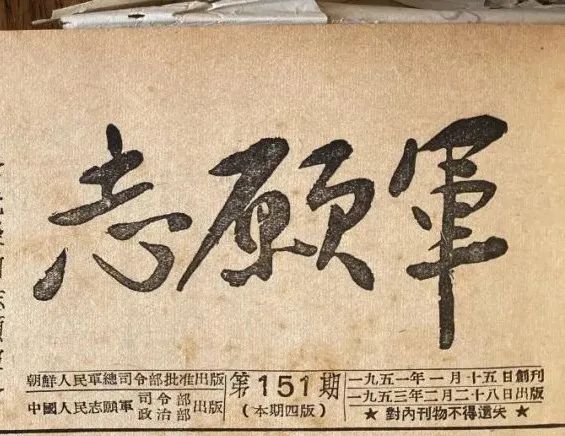 志願軍
朝鮮人民軍總司令部批准出版
中國人民志願軍 司令部 政治部 出版
第151期
(本期四版)
一九五一年一月十五日創刊
一九五三年二月二十八日出版
★ 對內刊物不得遺失 ★